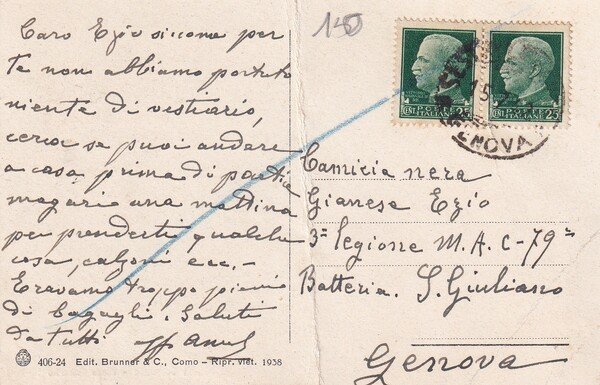 Caro Ezio siccome per
te non abbiamo portato
niente di vestiario,
cerca se puoi andare
a casa prima di partire
magari una mattina
per prenderti qualche
cosa, calzoni ecc.-
Eravamo troppo pieni
di bagagli. Saluti
da tutti
406-24 Edit. Brunner & C., Como – Ripr. viet. 1938
150
POSTE ITALIANE
CENT. 25
POSTE ITALIANE
CENT. 25
GENOVA
15
Camicia nera
Gianese Ezio
3ª legione M.A.C-79ª
Batteria. S. Giuliano
Genova